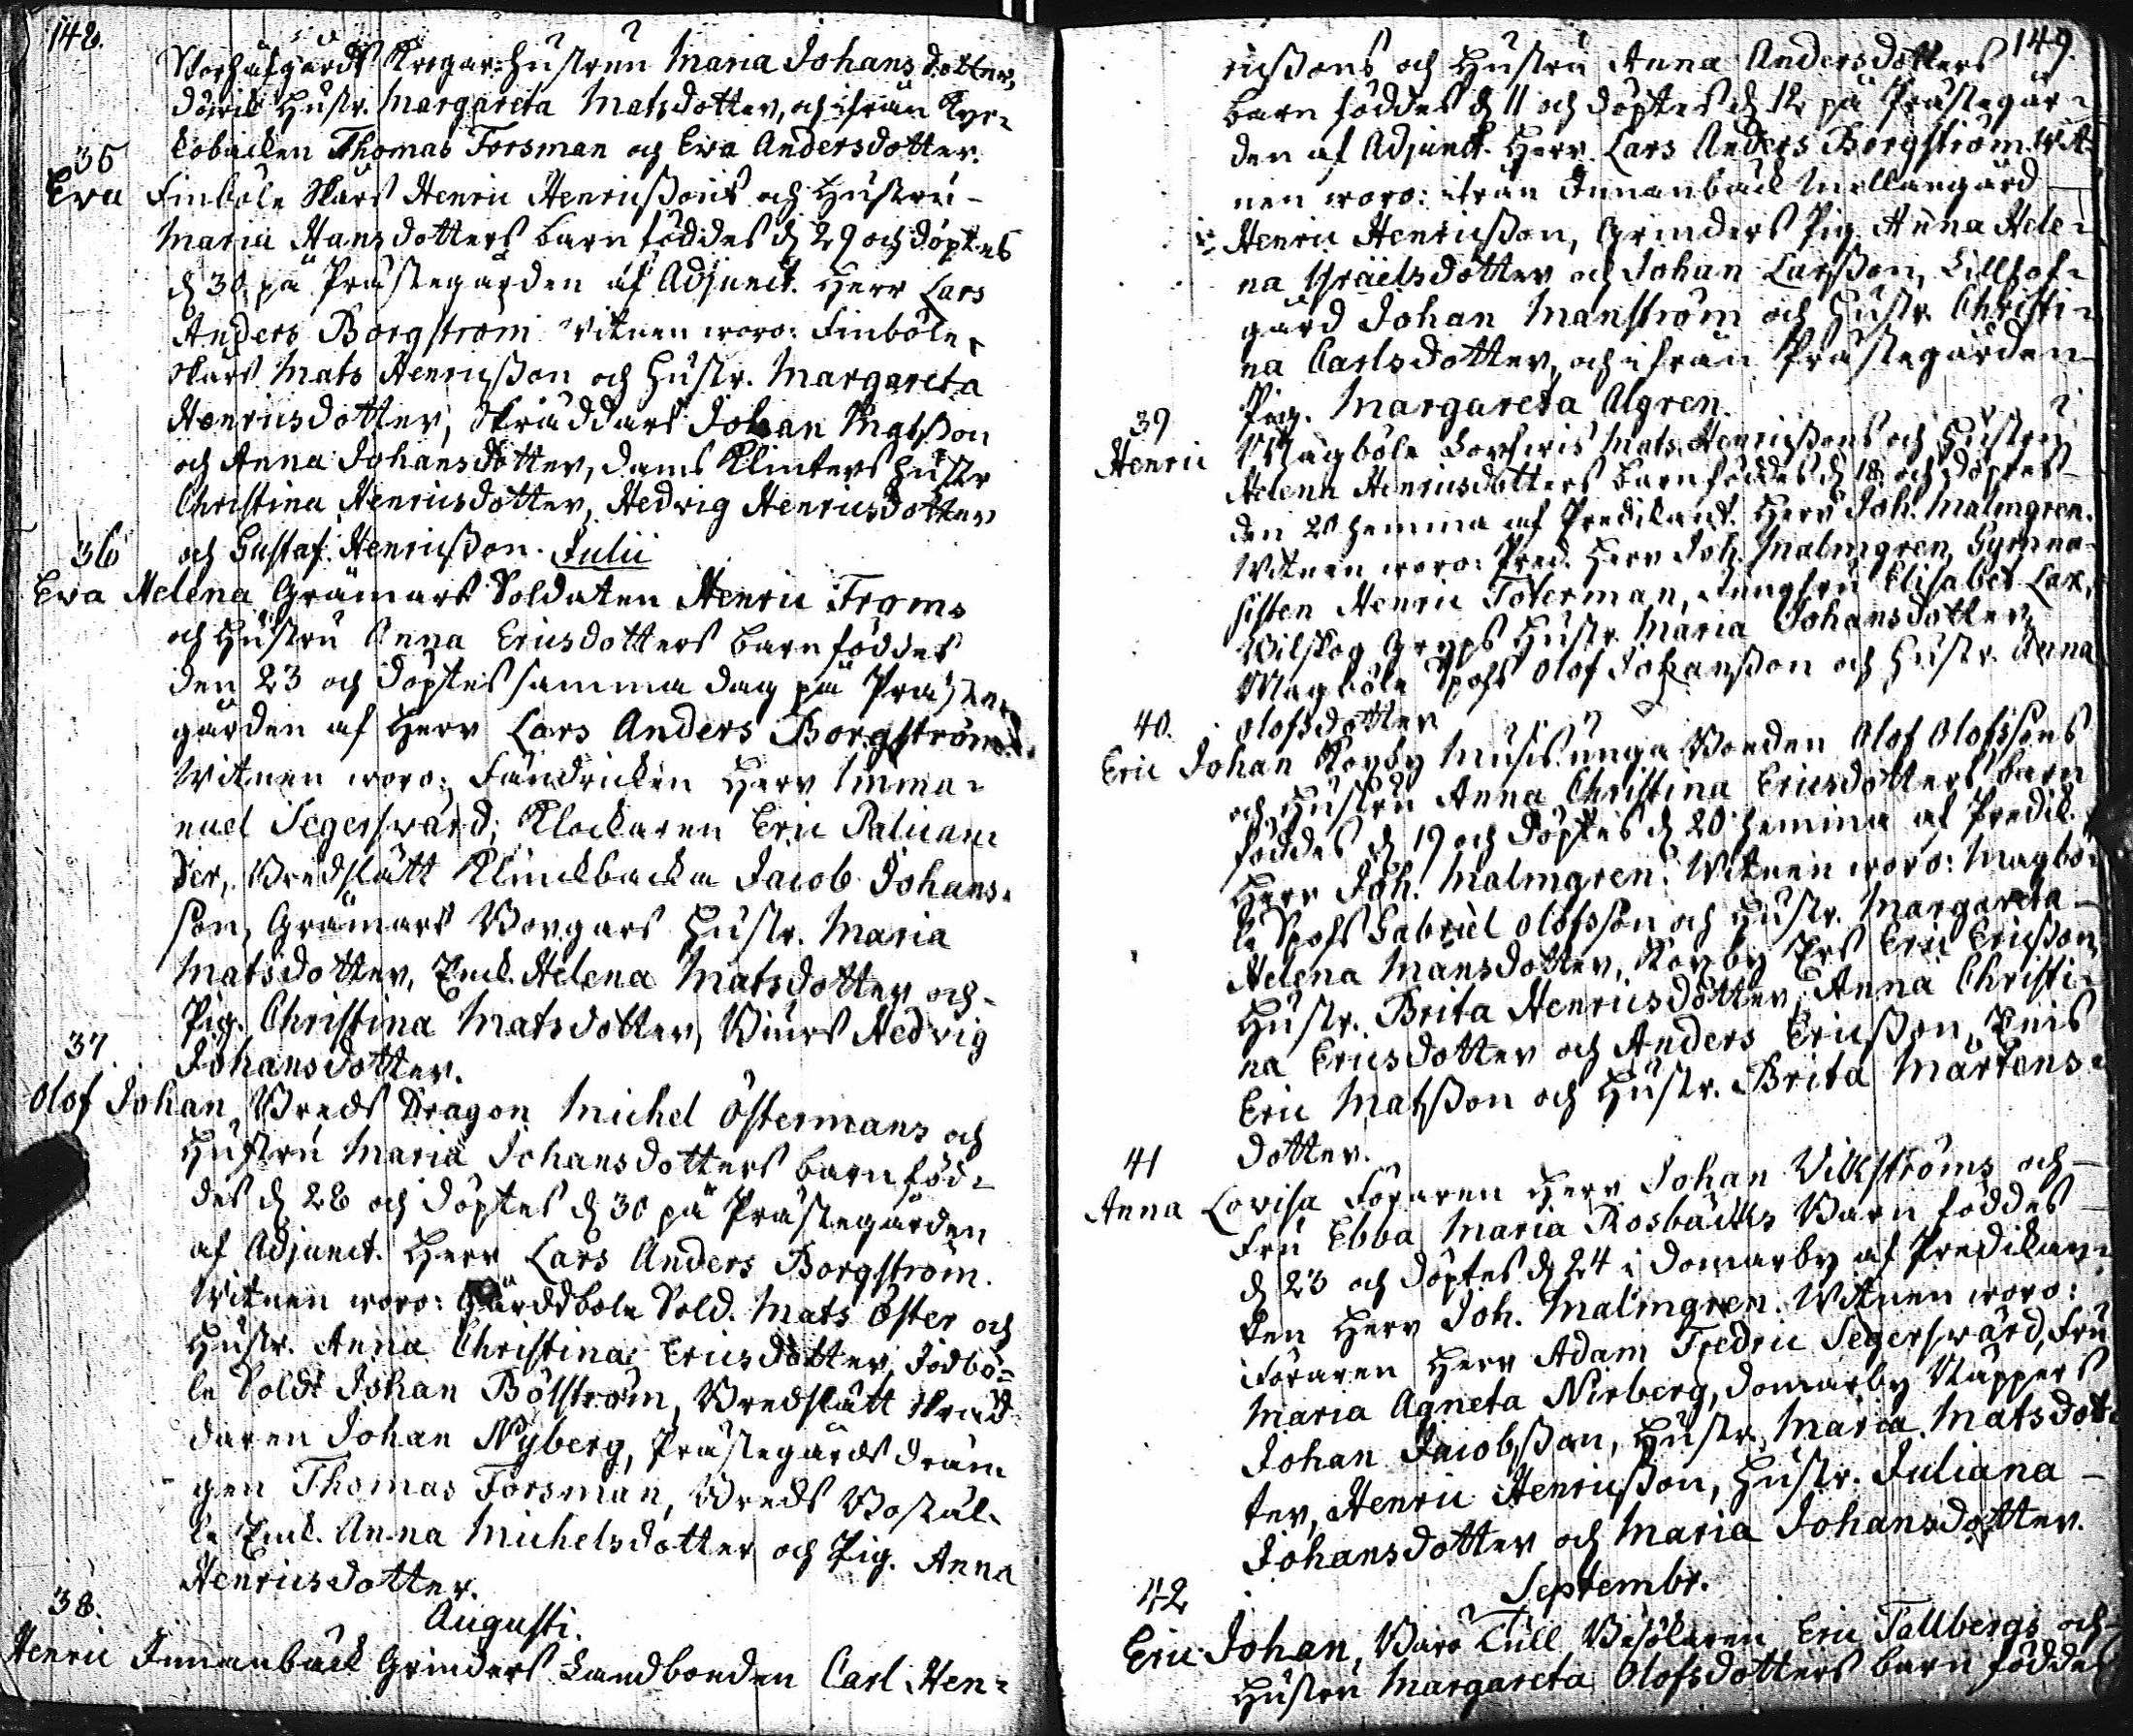 148.
Storhufgårds Krogar-Hustrun Maria Johansdotter,
Hustr. Margareta Matsdotter, och ifrån Kyr-
kobacken Thomas Forsman och Eva Andersdotter.
35
Eva Finböle Skärs Henric Henricßons och Hustru
Maria Hansdotters barn föddes d 29 och döptes
d 30 på Prästegården af Adjunct. Herr Lars
Anders Borgström Vitnen woro: Finböle
Skärs Mats Henricßon och Hustr. Margareta
Henricsdotter, Skräddars Johan Matsßon
och Anna Johansdotter, Dams Klinters Hustr
Christina Henricsdotter, Hedvig Henricsdotter
och Gustaf Henricßon. Julii
36
Eva Helena Grämars Soldaten Henric Froms
och Hustru Anna Ericsdotters barn föddes
den 23 och döptes samma dag på Präste-
gården af Herr Lars Anders Borgström.
Witnen woro: Fändricken Herr Imma-
nuel Segersvärd, Klockaren Eric Palican
der, Bredslätt Klinckbacka Jacob Johans-
son, Grämars Borgars Hustr. Maria
Matsdotter, Enk. Helena Matsdotter och
Pig. Christina Matsdotter, Hedvig
Johansdotter.
37
Olof Johan, Breds Dragon Michel Östermans och
Hustru Maria Johansdotters barn föd-
des d 28 och döptes d 30 på Prästegården
af Adjunct. Herr Lars Anders Borgström.
Witnen woro: Gärddböle Sold. Mats Öster och
Hustr. Anna Christina Ericsdotter, Jodbö-
le Sold: Johan Böström, Bredslätt Skräd
daren Johan Nyberg, Prästegårds drän
gen Thomas Forsman, Breds Bostäl-
le Enk. Anna Michelsdotter och Pig. Anna
Henricsdotter.
Augusti.
38.
Henric Innanbäck Grinders Landbonden Carl Hen-
149.
ricßons och Hustru Anna Andersdotters
barn föddes d 11 och döptes d 12 på Prästegår-
den af Adjunct. Herr Lars Anders Borgström. Wit-
nen woro: ifrån Innanbäck Mellangård
Henric Henricßon, Grinders Pig. Anna Hele-
na Ysraelsdotter och Johan Larsson, Lillhof-
gård Johan Manström och Hustr. Christi-
na Carlsdotter, och ifrån Prästegården
Pig. Margareta Algren.
39
Henric Magböle Mats Henricßons och Hustru
Helena Henricsdotters barn föddes d 18 och döptes
den 20 hemma af Predikant. Herr Joh. Malmgren.
Witnen woro: Pred. Herr Joh. Malmgren, Gymna-
sisten Henric Toterman, Jungfru Elisabet Lax,
Vilskog Hustr. Maria Johansdotter,
Magböle Spofs Olof Johansson och Hustr. Anna
Olofsdotter
40.
Eric Johan Norrby unga Bonden Olof Olofsons
och Hustru Anna Christina Ericsdotters barn
föddes d 19 och döptes d 20 hemma af Predik.
Herr Joh. Malmgren. Witnen woro: Magbö-
le Spofs Gabriel Olofsson och Hustr. Margareta
Helena Mansdotter, Norrby Ers Eric Ericßon
Hustr. Brita Henricsdotter, Anna Christi-
na Ericsdotter och Anders Ericßon,
Eric Matsßon och Hustr. Brita Mårtens-
dotter.
41
Anna Lovisa Föraren Herr Johan Vikströms och
Fru Ebba Maria Rosbäcks Barn föddes
d 23 och döptes d 24 i Domarby af Predikan-
ten Herr Joh. Malmgren. Witnen woro:
Föraren Herr Adam Fredric Segersvärd, Fru
Maria Agneta Nirberg, Domarby Nappers
Johan Jacobsßon, Hustr. Maria Matsdot-
ter, Henric Henricßon, Hustr. Juliana
Johansdotter och Maria Johansdotter.
Septembr.
42
Eric Johan, Varö Tull Besökaren Eric Tallbergs och
Hustru Margareta Olofsdotters barn föddes